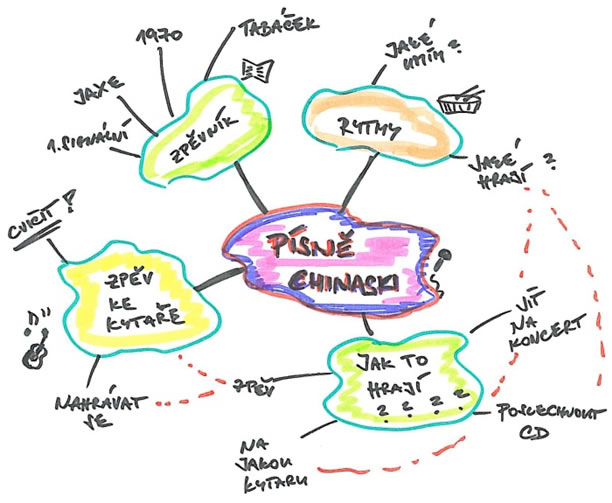 PÍSNĚ
CHINASKI
ZPĚVNÍK
1. SIGNÁLNÍ
JAXE
1970
TABÁČEK
RYTMY
JAKÉ
UMÍM?
JAKÉ
HRAJÍ?
ZPĚV
KE
KYTAŘE
CVIČIT?
NAHRÁVAT
SE
JAK TO
HRAJÍ
? ? ? ?
ZPĚV
NA
JAKOU
KYTARU
JÍT
NA
KONCERT
POSLECHNOUT
CD